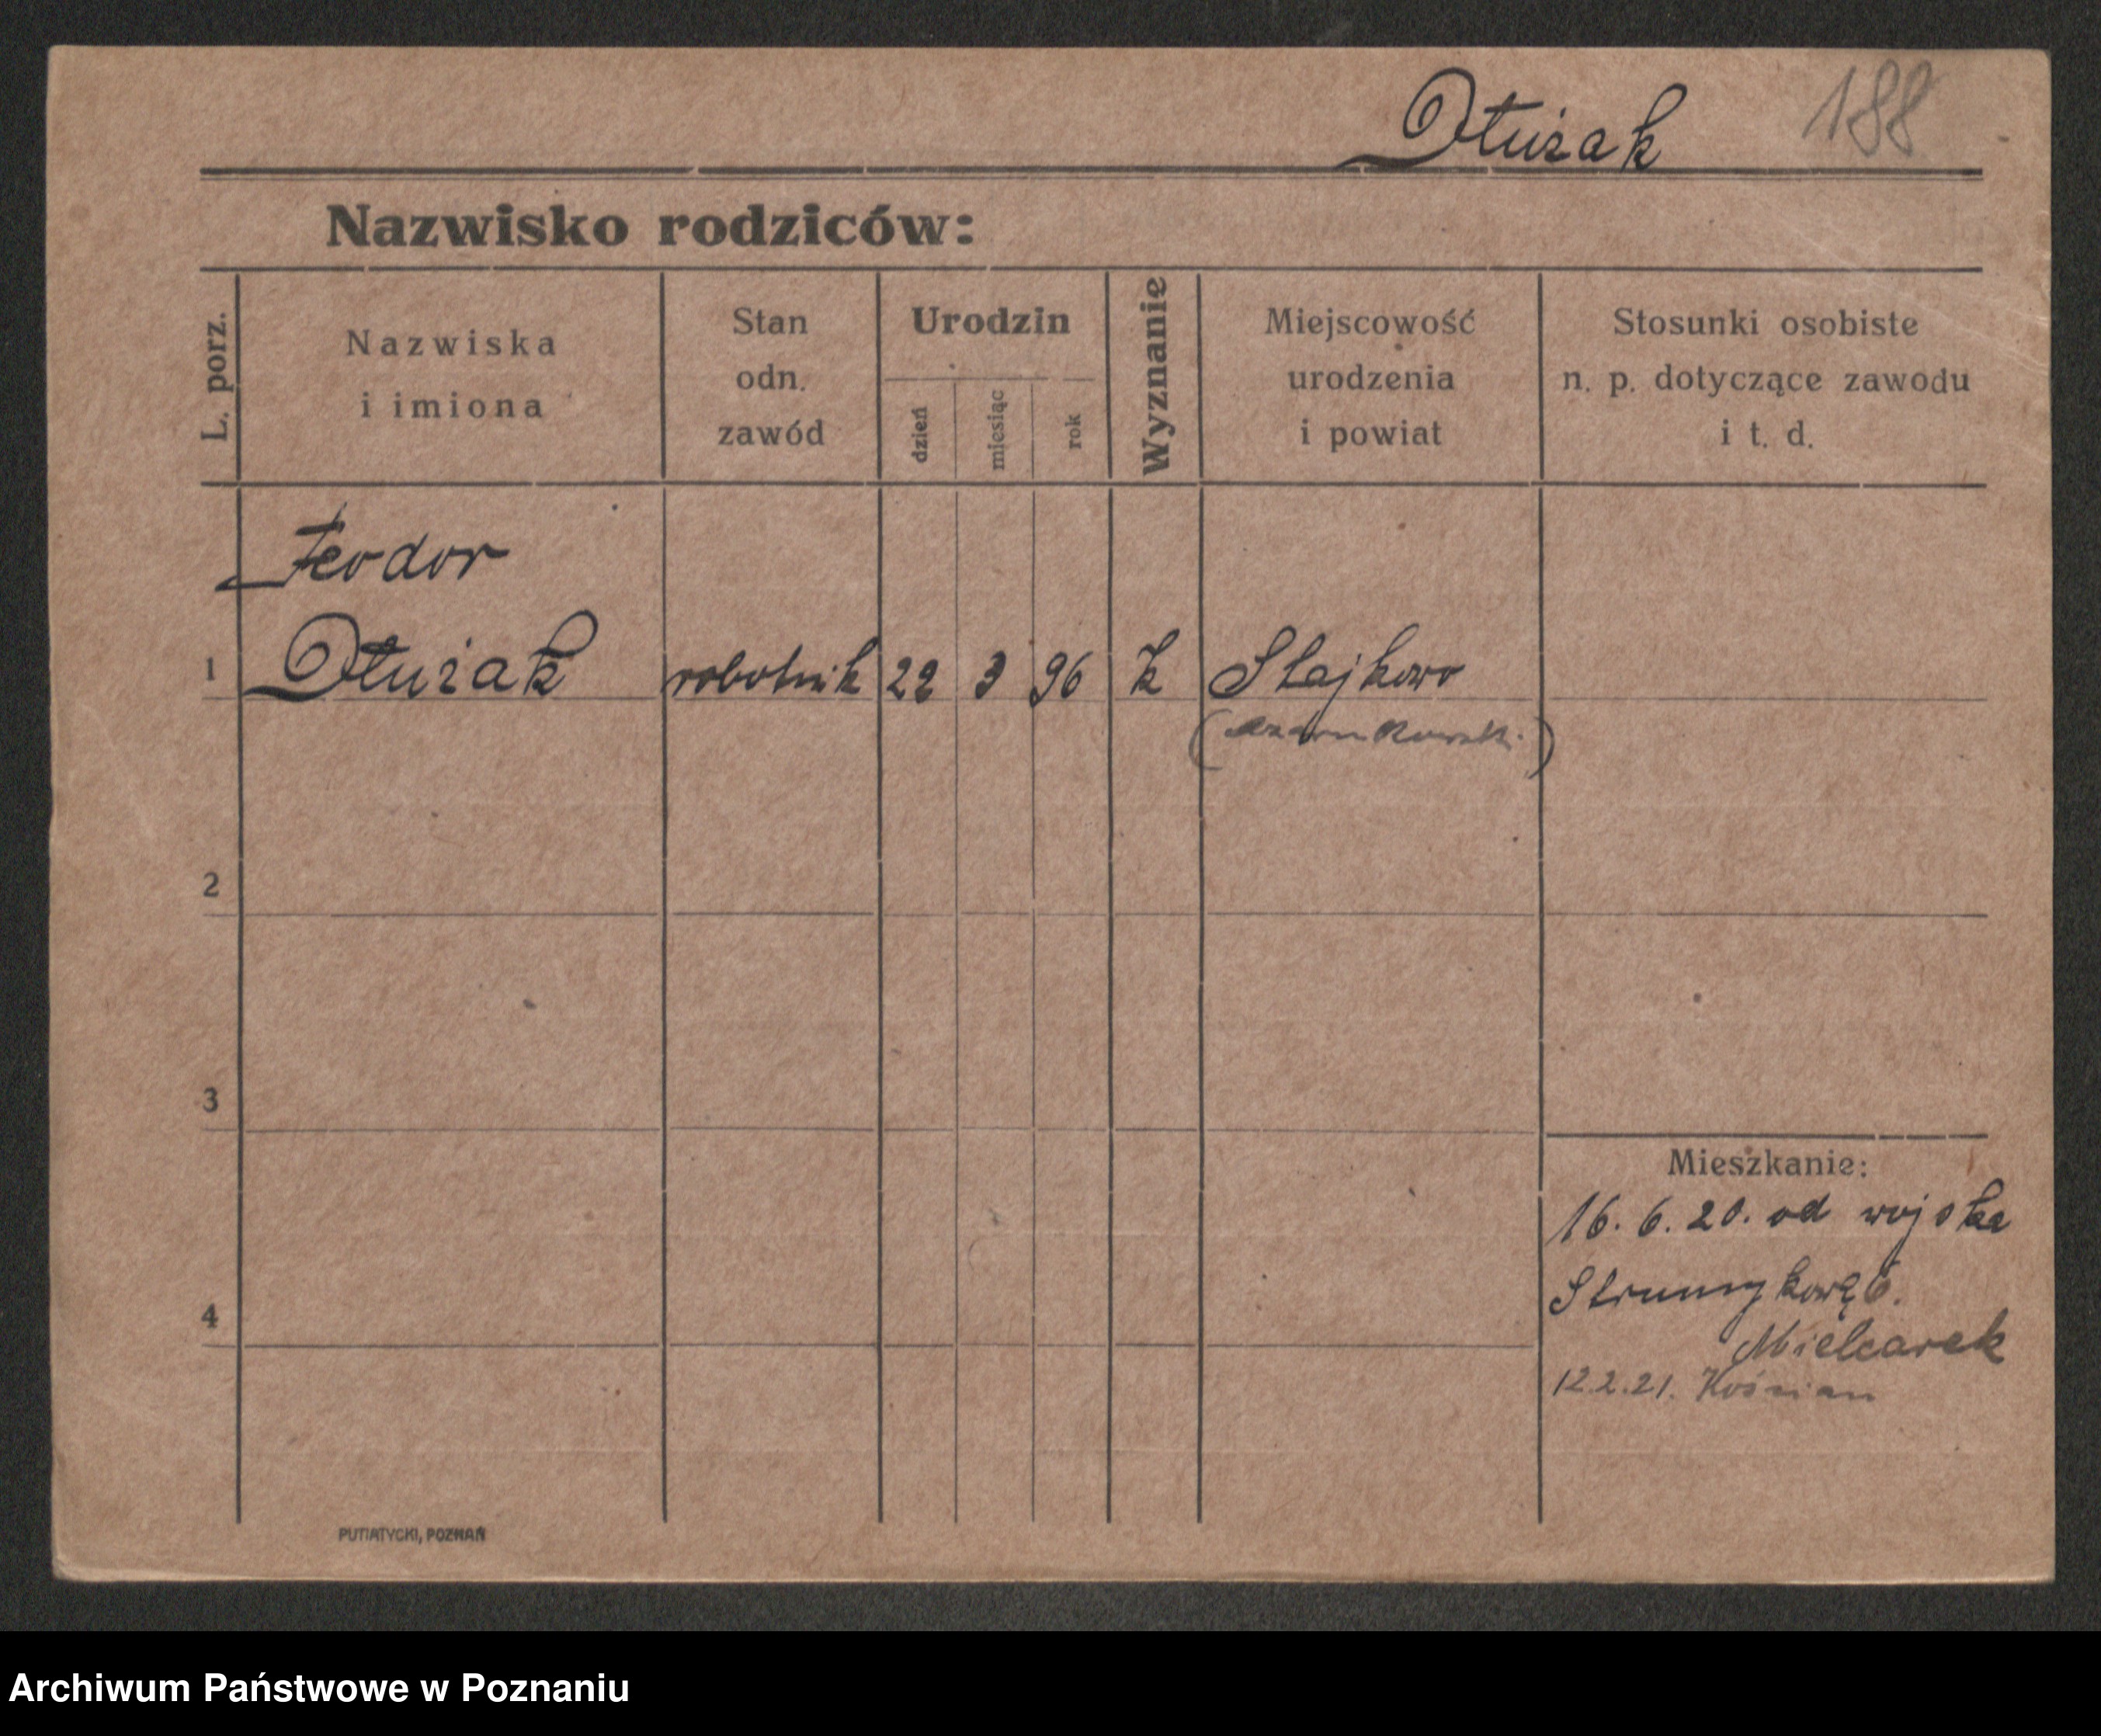 Dłużak 188
Nazwisko rodziców:
L. porz.
Nazwiska
i imiona
Stan
odn.
zawód
Urodzin
dzień
miesiąc
rok
Wyznanie
Miejscowość
urodzenia
i powiat
Stosunki osobiste
n. p. dotyczące zawodu
i t. d.
Teodor
1 Dłużak robotnik 22 3 96 k Stajkowo
(czarnkowski)
2
3
Mieszkanie:
16. 6. 20. od wojska
6.
4
Mielcarek
12.2.21. Kościan
PUTIATYCKI, POZNAŃ
Archiwum Państwowe w Poznaniu